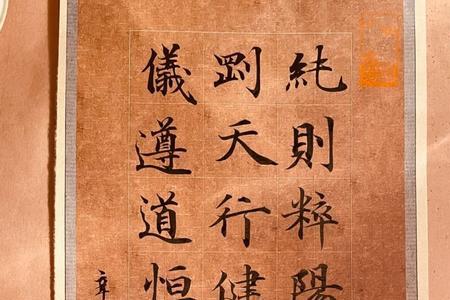 純則粹陽
剛天行健
儀遵道恒
辛